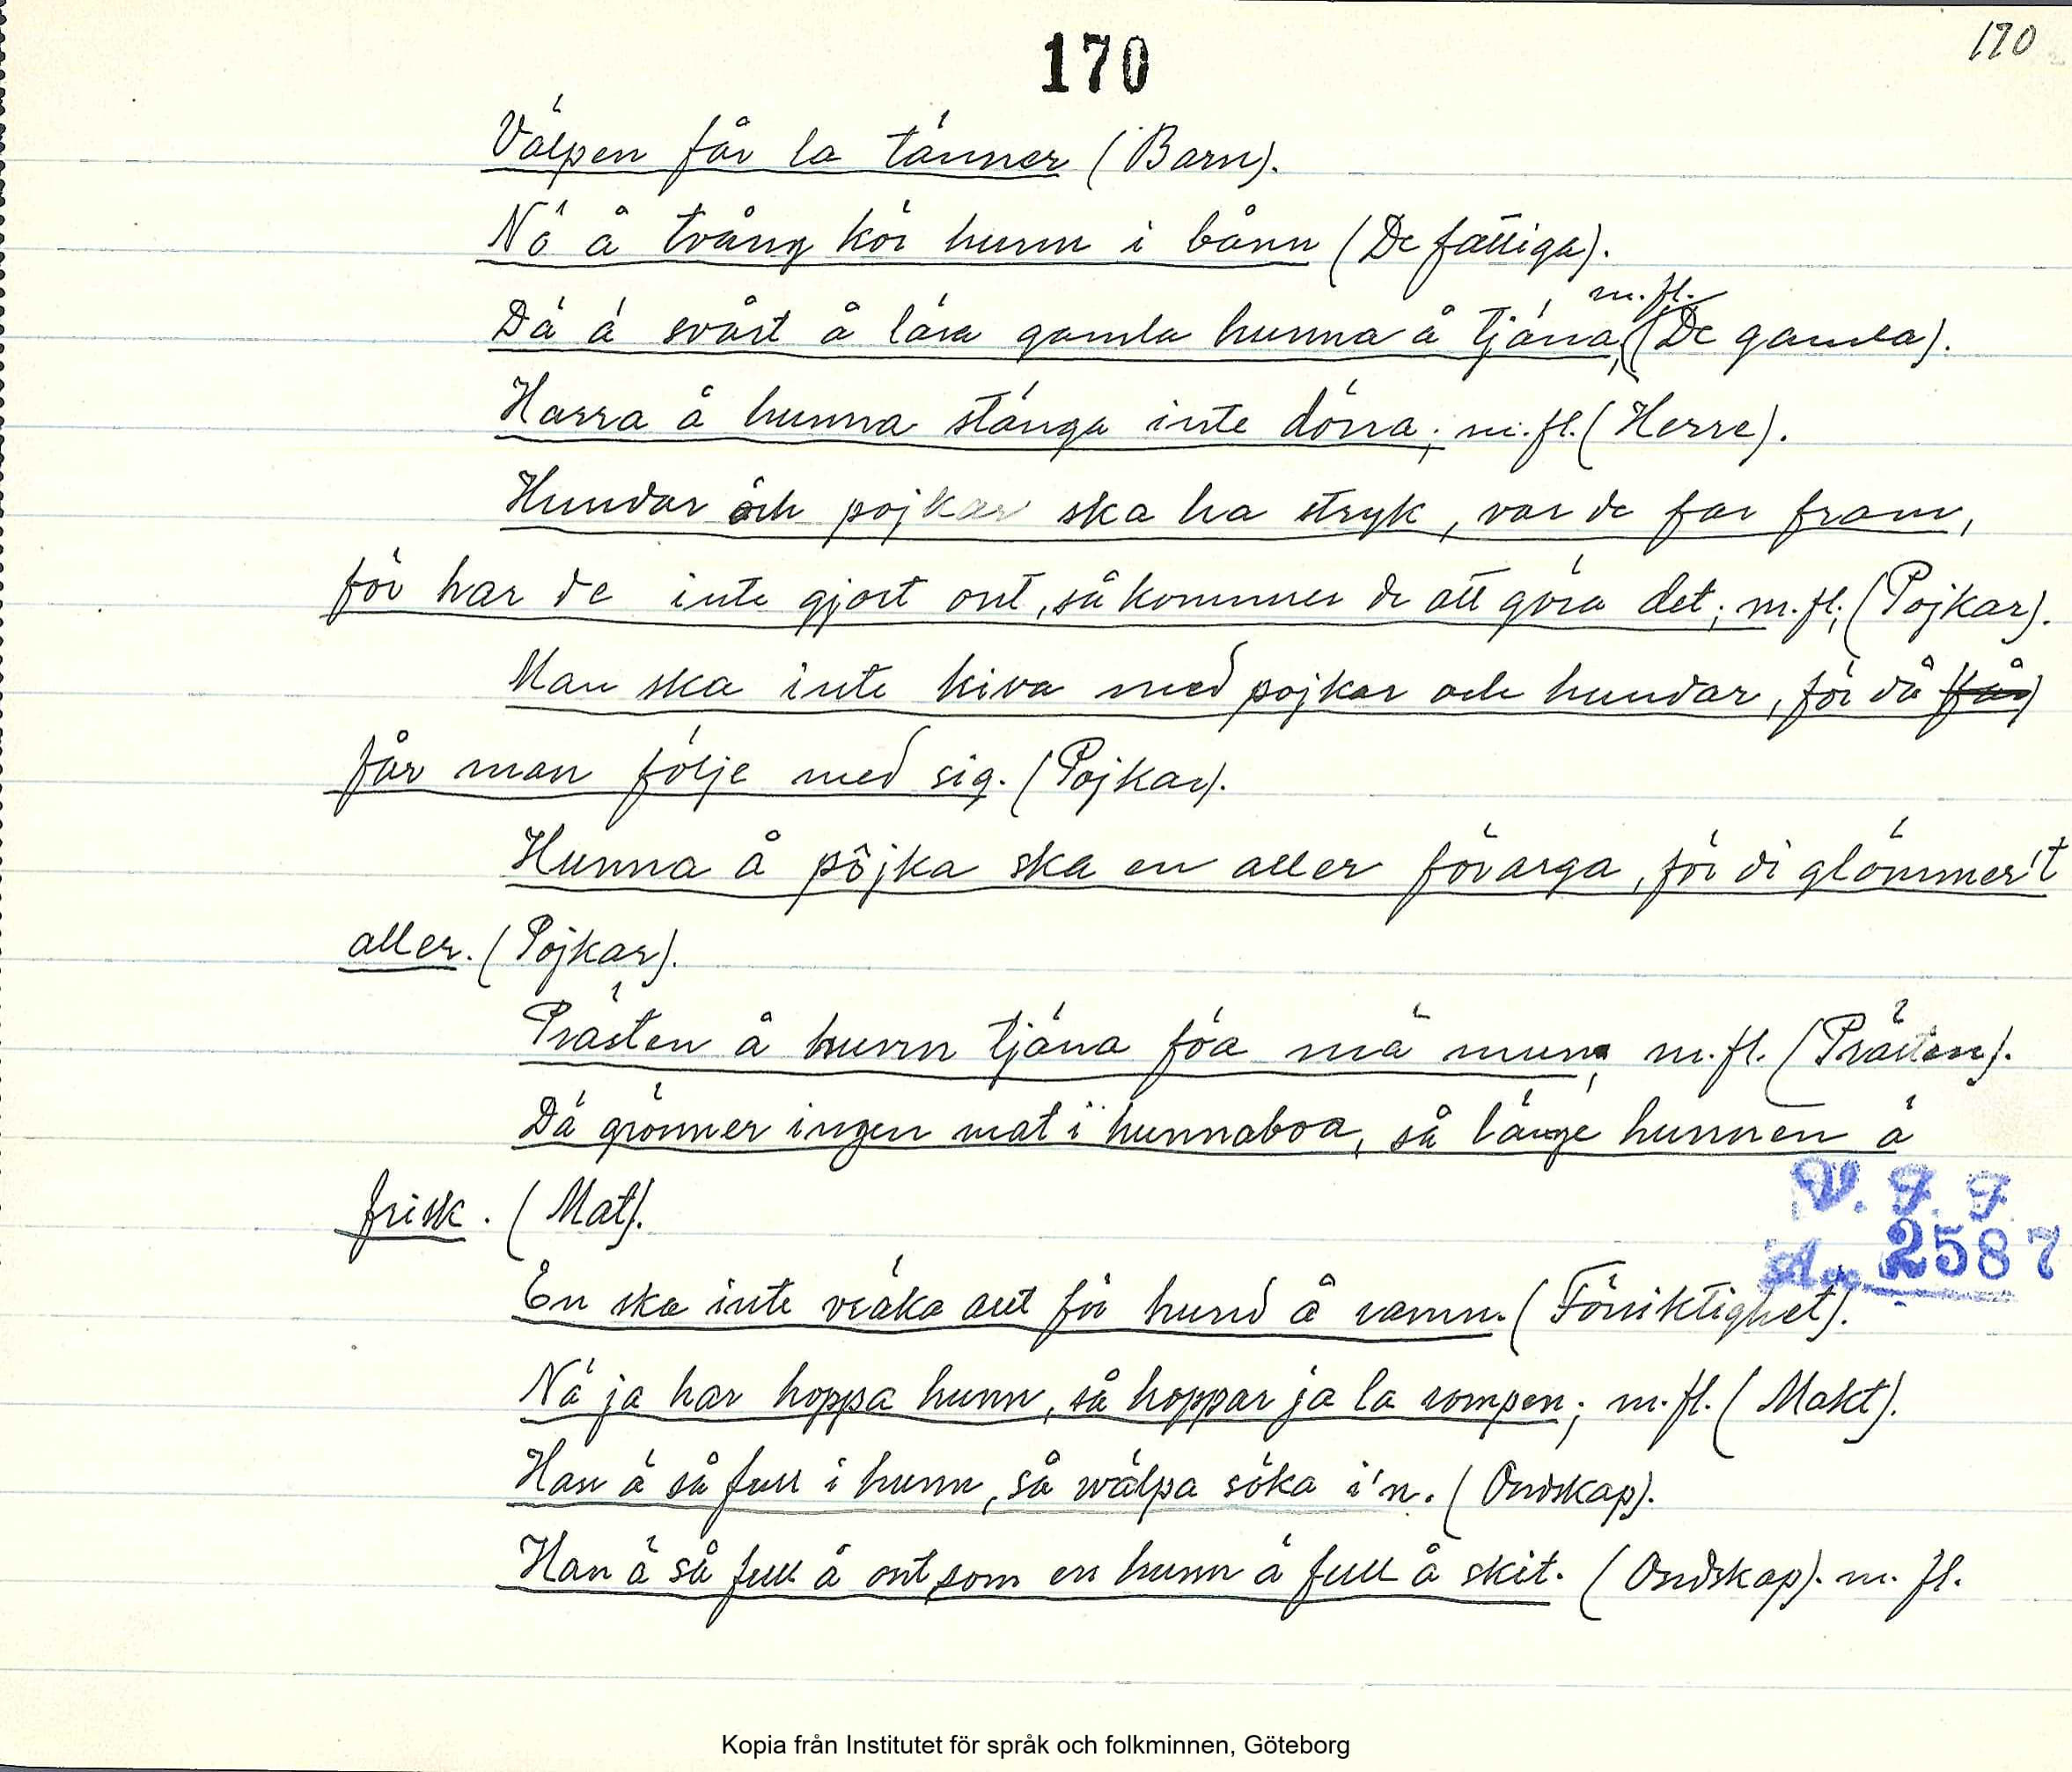 170
170
Välpen får la tänner (Barn).
Nö å tvång kör hunn i bånn (De fattiga).
m.fl.
Dä ä svårt å lära gamla hunna å tjäna, (De gamla).
Harra å hunna stänga inte dörra; m.fl. (Herre).
Hundar och pojkar ska ha stryk, var de far fram,
för har de inte gjort ont, så kommer de att göra det; m.fl; (Pojkar).
Man ska inte kiva med pojkar och hundar, för då (får)
får man följe med sig. (Pojkar).
Hunna å pôjka ska en aller förarga, för di glömmer't
aller. (Pojkar).
Prästen å hunn tjäna föa mä munn; m.fl. (Prästen).
Dä grönner ingen mat i hunnaboa, så länge hunnen ä
frisk. (Mat).
V. F. F.
Acc. 2587
En ska inte vräka aut för hund å ramn. (Försiktighet).
Nä ja har hoppa hunn, så hoppar ja la rompen; m.fl. (Makt).
Han ä så full i hunn, så wälpa söka i'n. (Ondskap).
Han ä så full å ont, som en hunn ä full å skit. (Ondskap). m. fl.
Kopia från Institutet för språk och folkminnen, Göteborg